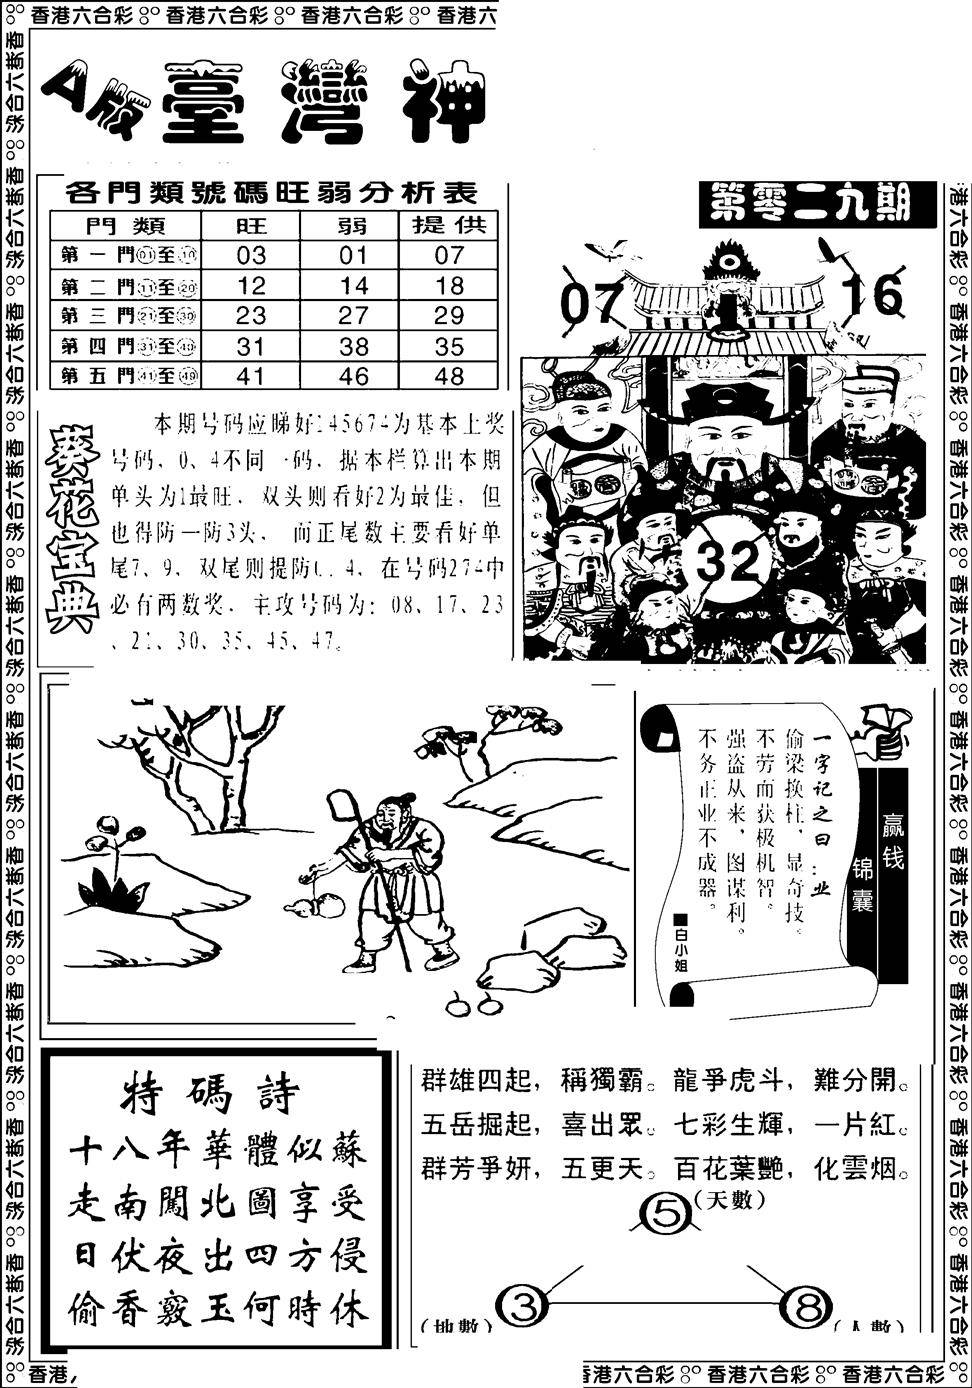 香港六合彩 香港六合彩 香港六合彩 香港六
A版 臺灣神
各門類號碼旺弱分析表
門類 旺 弱 提供
第一門01至10 03 01 07
第二門11至20 12 14 18
第三門21至30 23 27 29
第四門31至40 31 38 35
第五門41至49 41 46 48
第零二九期
07
16
32
葵花宝典
本期号码应睇好145674为基本上奖
号码，0、4不同一码，据本栏算出本期
单头为1最旺，双头则看好2为最佳，但
也得防一防3头，而正尾数主要看好单
尾7、9，双尾则提防0、4，在号码274中
必有两数奖，主攻号码为：08、17、23
、21、30、35、45、47。
一字记之曰：业
偷梁换柱，显奇技。
不劳而获极机智。
强盗从来，图谋利。
不务正业不成器。
■白小姐
赢钱
锦囊
特碼詩
十八年華體似蘇
走南闖北圖享受
日伏夜出四方侵
偷香竊玉何時休
群雄四起，稱獨霸。龍爭虎斗，難分開。
五岳掘起，喜出眾。七彩生輝，一片紅。
群芳爭妍，五更天。百花葉艷，化雲烟。
5 (天數)
3 8
(地數) (人數)
香港
香港六合彩 香港六合彩 香港六合彩